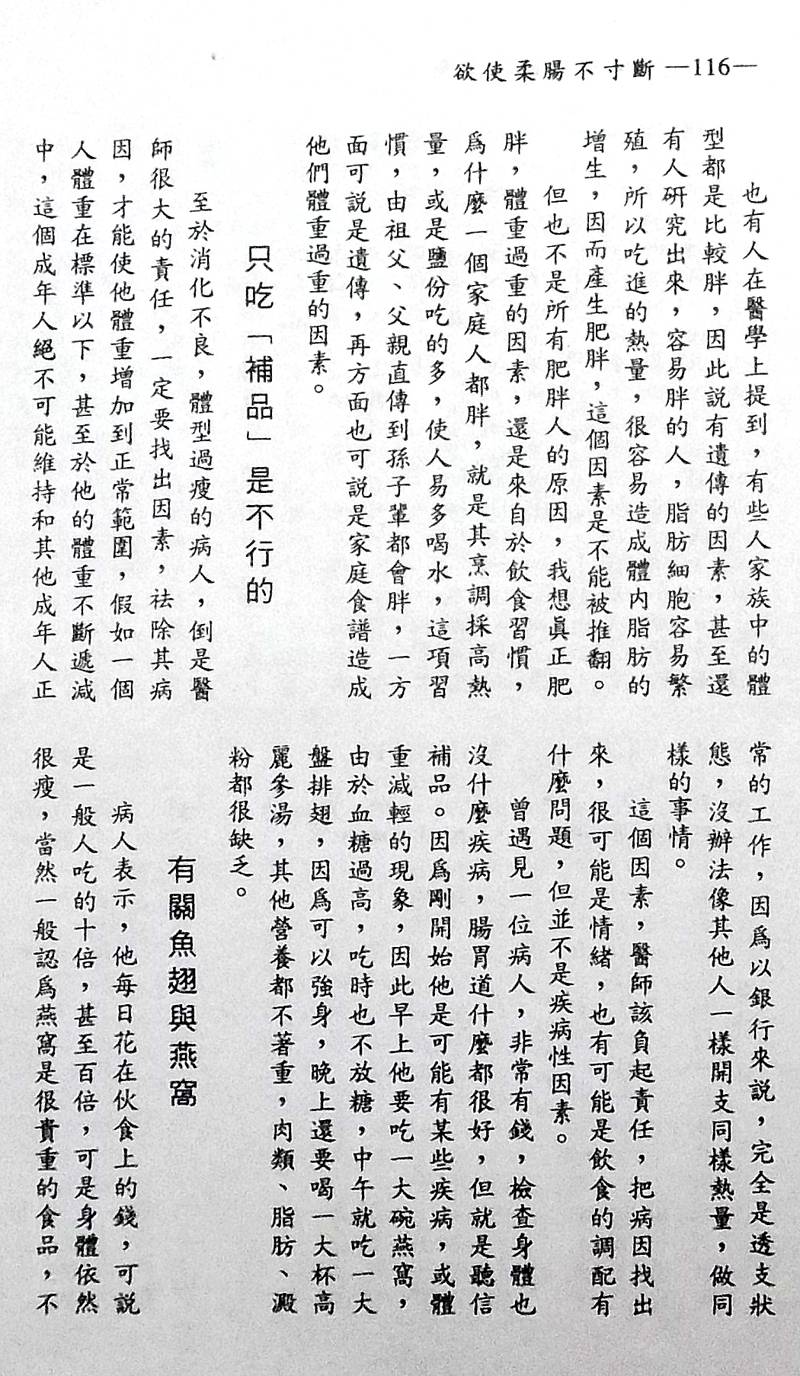 欲使柔腸不寸斷 —116—
也有人在醫學上提到，有些人家族中的體
型都是比較胖，因此説有遺傳的因素，甚至還
有人研究出來，容易胖的人，脂肪細胞容易繁
殖，所以吃進的熱量，很容易造成體內脂肪的
增生，因而產生肥胖，這個因素是不能被推翻。
但也不是所有肥胖人的原因，我想眞正肥
胖，體重過重的因素，還是來自於飲食習慣，
爲什麼一個家庭人都胖，就是其烹調採高熱
量，或是鹽份吃的多，使人易多喝水，這項習
慣，由祖父、父親直傳到孫子輩都會胖，一方
面可説是遺傳，再方面也可説是家庭食譜造成
他們體重過重的因素。
只吃「補品」是不行的
至於消化不良，體型過瘦的病人，倒是醫
師很大的責任，一定要找出因素，祛除其病
因，才能使他體重增加到正常範圍，假如一個
人體重在標準以下，甚至於他的體重不斷遞減
中，這個成年人絕不可能維持和其他成年人正
常的工作，因爲以銀行來説，完全是透支狀
態，沒辦法像其他人一樣開支同樣熱量，做同
樣的事情。
這個因素，醫師該負起責任，把病因找出
來，很可能是情緒，也有可能是飲食的調配有
什麼問題，但並不是疾病性因素。
曾遇見一位病人，非常有錢，檢查身體也
沒什麼疾病，腸胃道什麼都很好，但就是聽信
補品。因爲剛開始他是可能有某些疾病，或體
重減輕的現象，因此早上他要吃一大碗燕窩，
由於血糖過高，吃時也不放糖，中午就吃一大
盤排翅，因爲可以強身，晚上還要喝一大杯高
麗參湯，其他營養都不著重，肉類、脂肪、澱
粉都很缺乏。
有關魚翅與燕窩
病人表示，他每日花在伙食上的錢，可説
是一般人吃的十倍，甚至百倍，可是身體依然
很瘦，當然一般認爲燕窩是很貴重的食品，不